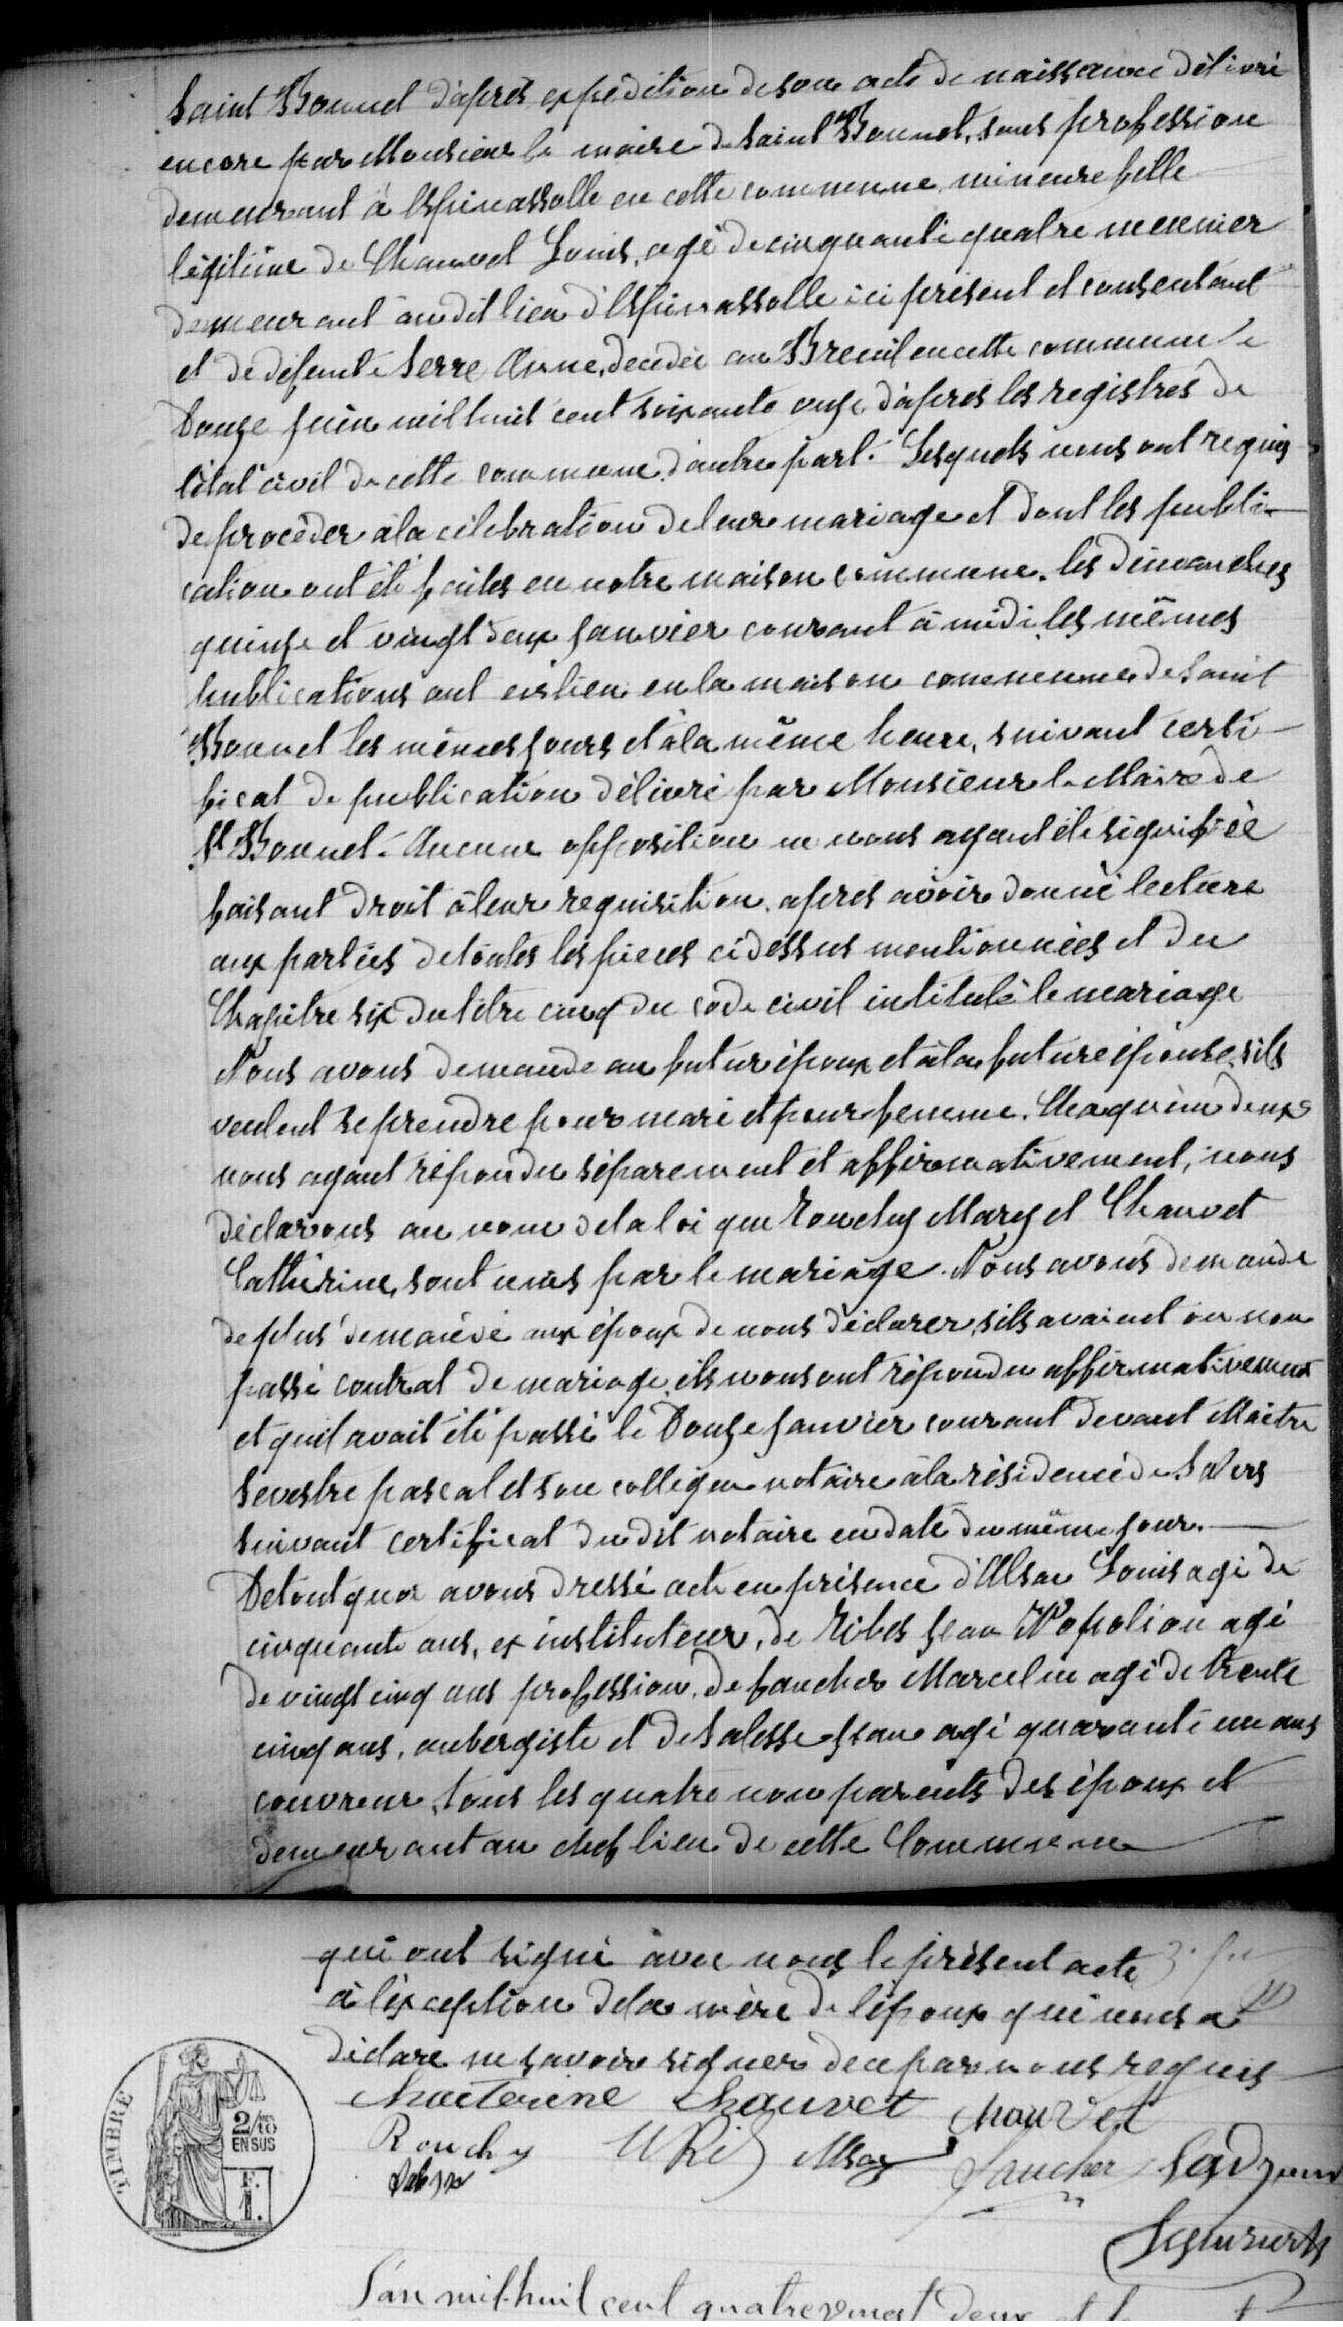 Saint Bonnet d'après expédition de son acte de naissance délivré
encore par Monsieur le maire de Saint Bonnet, sans profession
demeurant à Espinassolle en cette commune mineure fille
légitime de Chauvet Louis, agé de cinquante quatre meunier
demeurant au dit lieu d'Espinassolle ici présent et consentant
et de défunte Serre Anne, décédée au Breuil en cette commune le
Douze juin mil huit cent soixante onze d'après les registres de
l'état civil de cette commune d'autre part. Lesquels nous ont requis
de procéder à la célébration de leur mariage et dont les publi-
cation ont été faites en notre maison commune, les dimanches
quinze et vingt deux janvier courant à midi, les mêmes
publications ont eu lieu en la maison commune de Saint
Bonnet les mêmes jours et à la même heure, suivant certi-
ficat de publication délivré par Monsieur le Maire de
St Bonnet. Aucune opposition ne nous ayant été signifiée
faisant droit à leur requisition, après avoir donné lecture
aux parties de toutes les pièces cidessus mentionnées et du
Chapitre six du titre cinq du code civil intitulé le mariage
Nous avons demande au futur époux et à la future épouse, s'ils
veulent se prendre pour mari et pour femme. Chaqu'un d'eux
nous ayant répondu séparement et affirmativement, nous
déclarons au nom de la loi que Rouchy Mary et Chauvet
Catherine, sont unis par le mariage. Nous avons demande
de plus demandé aux époux de nous déclarer, s'ils avaient ou non
passé contrat de mariage, ils nous ont répondu affirmativement
et qu'il avait été passé le Douze janvier courant devant Maître
Sevestre pascal et son collègue notaire à la résidence de Salers
suivant certificat du dit notaire en date du même jour.
De tout quoi avons dressé acte en présence d'Alsac Louis agé de
cinquante ans, ex instituteur, de Ribes Jean Napoléon agé
de vingt cinq ans profession, de faucher Marcelin agé de trente
cinq ans, aubergiste et de Salesse Jean agé quarante un ans
couvreur, tous les quatre non parents des époux et
demeurant au chef lieu de cette Commune
qui ont signé avec nous le présent acte
à l'exception de la mère de l'époux qui nous a
déclare ne savoir signer de ce par nous requis
Chauvet Chauvet
Rouchy Alsac Faucher
TIMBRE
2/10
EN SUS
F.
1.
L'an mil huit cent quatrevingt deux et le